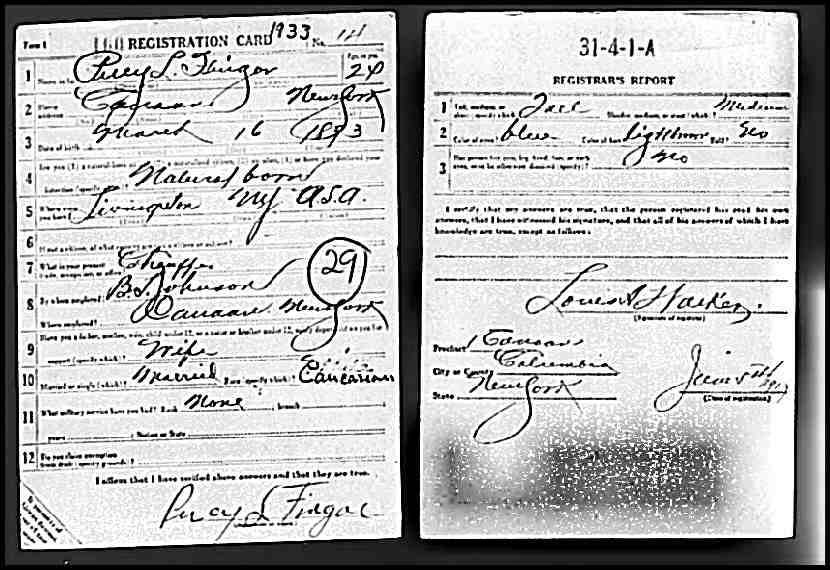 Form 1 REGISTRATION CARD 1933 No. 14
1 Percy L. Fingar 24
2 Canaan New York
3 Date of birth March 16 1893
4 Natural born
5 Livingston NY U.S.A.
6
7 What is your present Chauffer
29
8 By whom employed? B. L. Johnson
Where employed? Canaan New York
9 Have you a father, mother, wife, child under 12, or a sister or brother under 12, solely dependent on you for
support (specify which)? Wife
10 Married or single (which)? Married Race (specify which)? Caucasian
11 What military service have you had? Rank None branch
years Nation or State
12 Do you claim exemption
from draft (specify grounds)?
I affirm that I have verified above answers and that they are true.
Percy L Fingar
31-4-1-A
REGISTRAR'S REPORT
1 Tall, medium, or short (specify which)? Tall Slender, medium, or stout (which)? Medium
2 Color of eyes? blue Color of hair? Lightbrown Bald? No
3 Has person lost arm, leg, hand, foot, or both
eyes, or is he otherwise disabled (specify)? No
I certify that my answers are true, that the person registered has read his own
answers, that I have witnessed his signature, and that all of his answers of which I have
knowledge are true, except as follows:
(Signature of registrar)
Precinct 1 Canaan
City or County Columbia
State New York
June 5th 1917
(Date of registration)